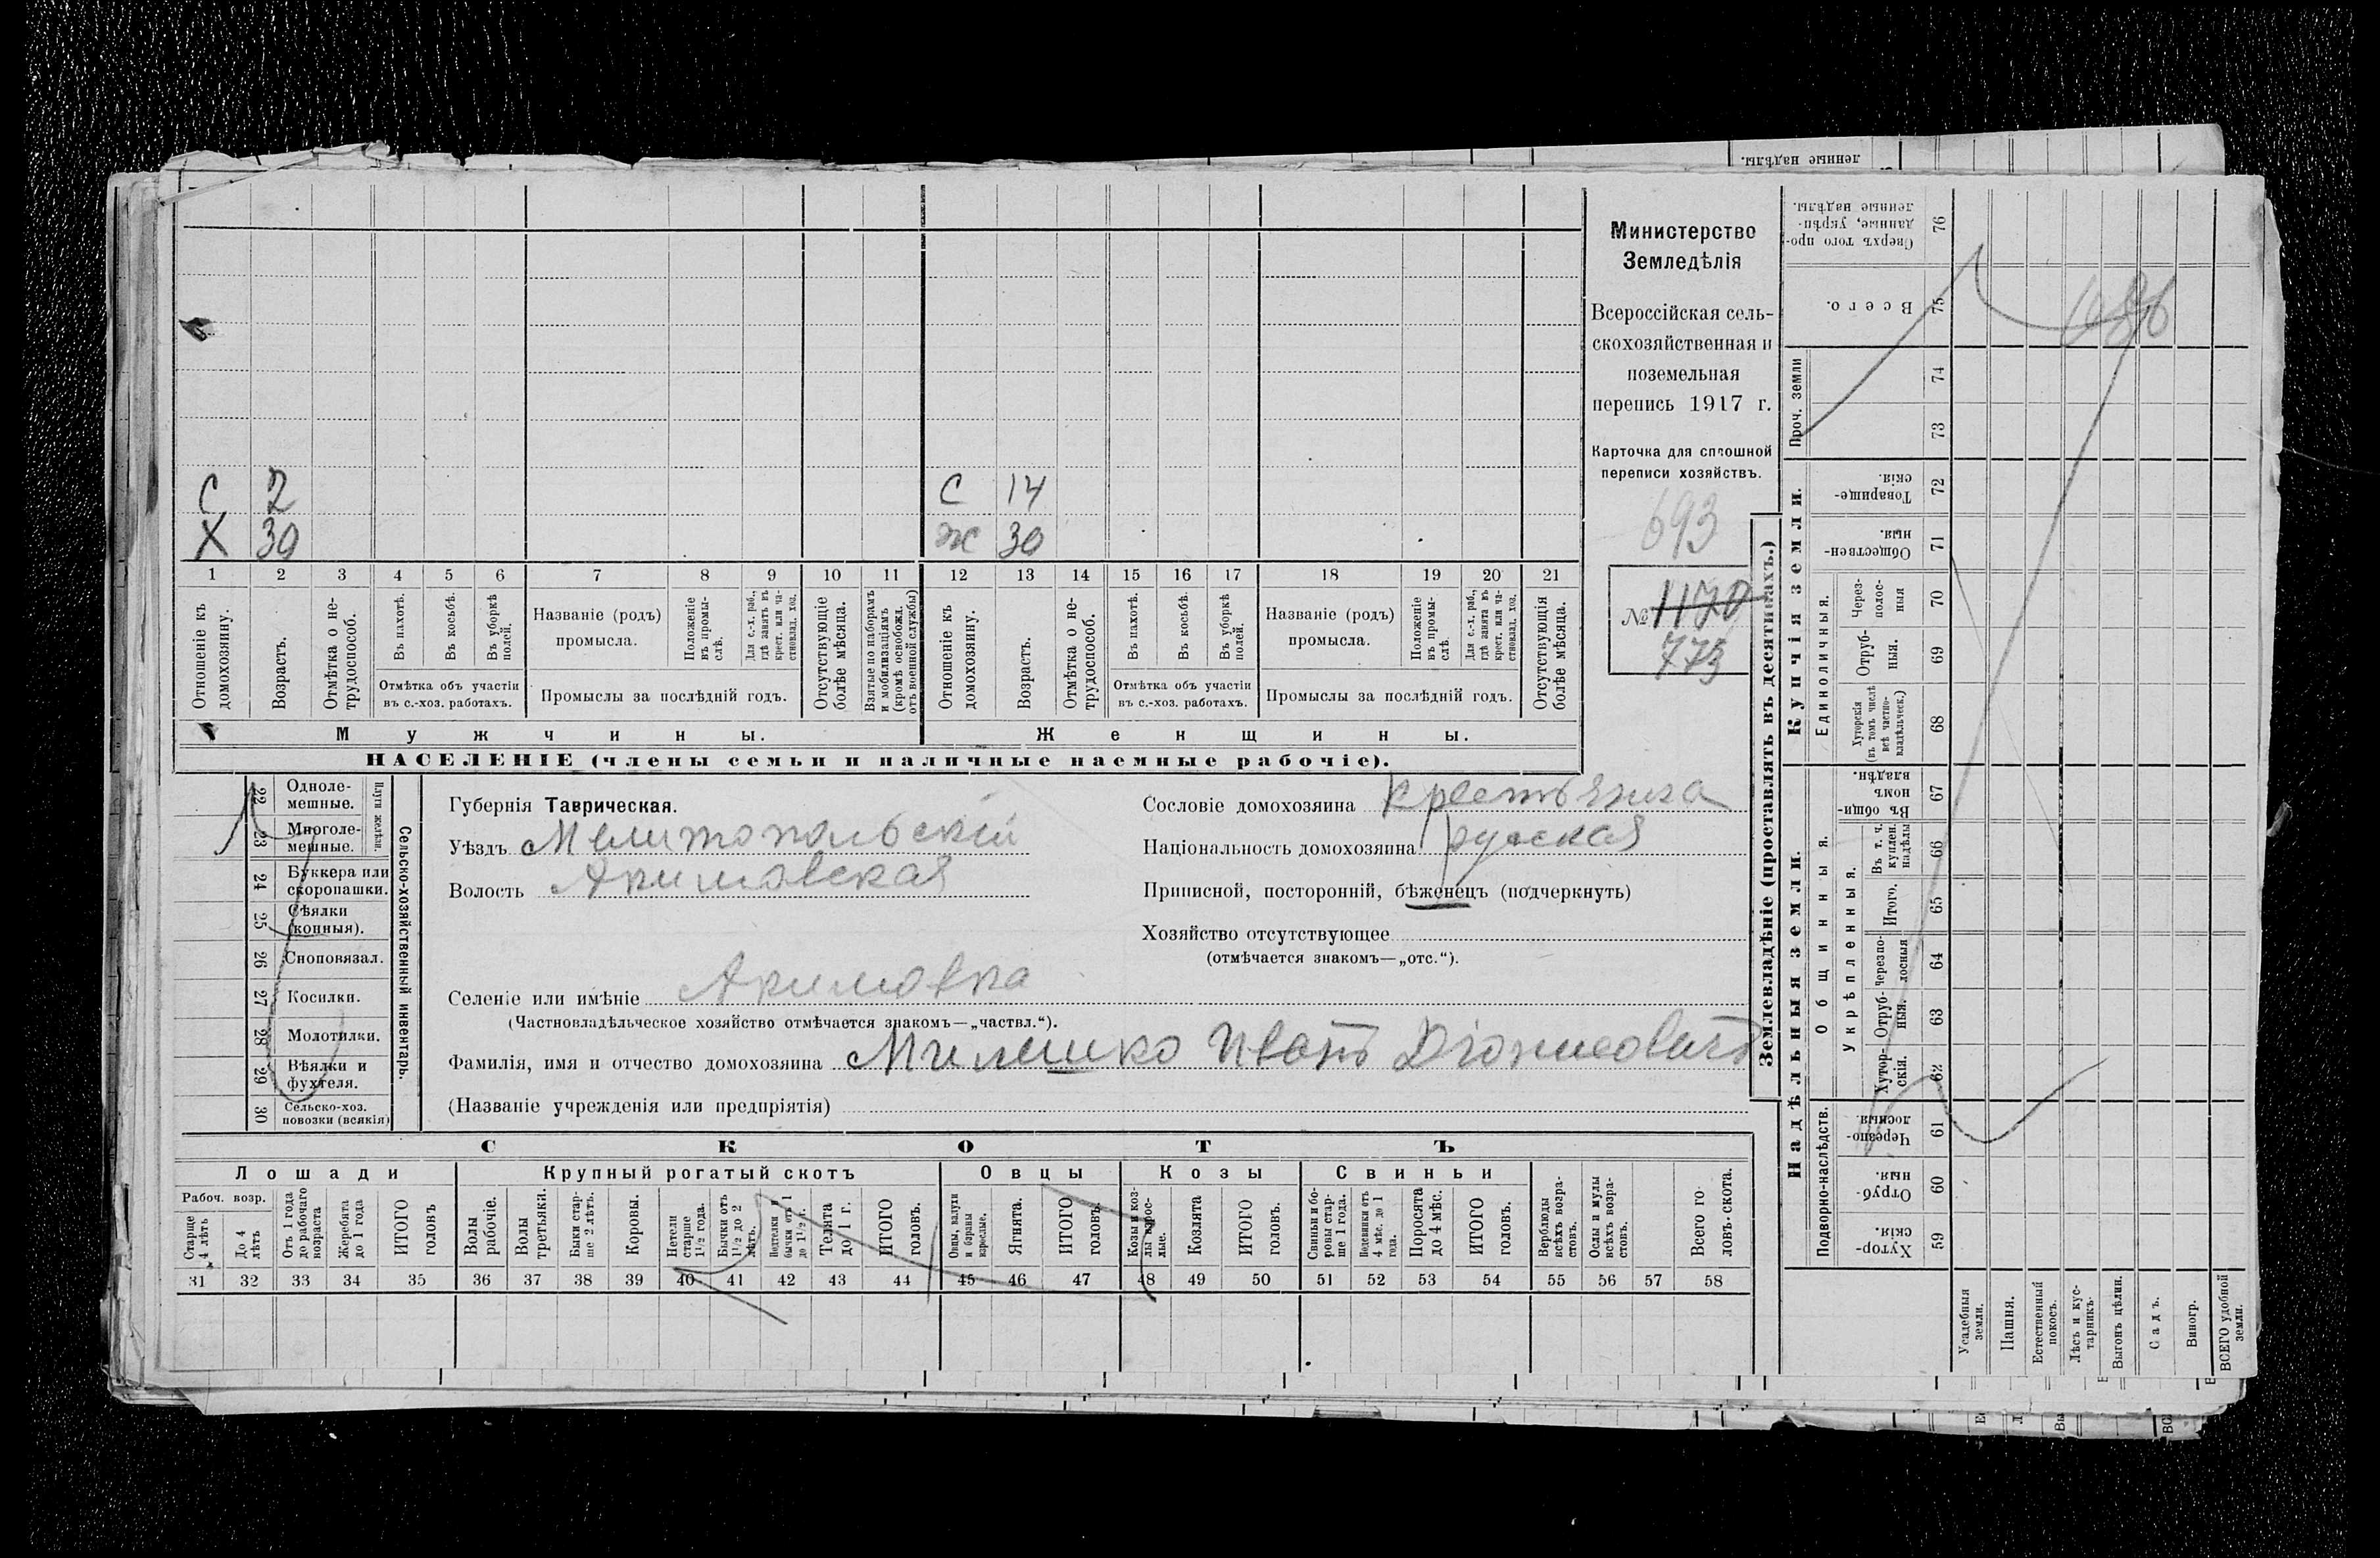 ленные надѣлы.
С 2 С 14
Х 30 ж 30
1 2 3 4 5 6 7 8 9 10 11 12 13 14 15 16 17 18 19 20 21
Отношеніе къ домохозяину.
Возрастъ.
Отмѣтка о не-трудоспособ.
Въ пахотѣ.
Въ косьбѣ.
Въ уборкѣ полей.
Отмѣтка объ участіи
въ с.-хоз. работахъ.
Названіе (родъ)
промысла.
Положеніе въ промы-слѣ.
Для с.-х. раб., гдѣ занятъ въ крест. или ча-стновлад. хоз.
Промыслы за послѣдній годъ.
Отсутствующіе болѣе мѣсяца.
Взятые по наборамъ и мобилизаціямъ (кромѣ освобожд. отъ военной службы)
Отношеніе къ домохозяину.
Возрастъ.
Отмѣтка о не-трудоспособ.
Въ пахотѣ.
Въ косьбѣ.
Въ уборкѣ полей.
Отмѣтка объ участіи
въ с.-хоз. работахъ.
Названіе (родъ)
промысла.
Положеніе въ промы-слѣ.
Для с.-х. раб., гдѣ занята въ крест. или ча-стновлад. хоз.
Промыслы за послѣдній годъ.
Отсутствующія болѣе мѣсяца.
Мужчины. Женщины.
НАСЕЛЕНІЕ (члены семьи и наличные наемные рабочіе).
Министерство
Земледѣлія
Всероссійская сель-
скохозяйственная и
поземельная
перепись 1917 г.
Карточка для сплошной
переписи хозяйствъ.
693
№ 1170
773
22 Одноле-мешные.
23 Многоле-мешные.
Плуги желѣзн.
24 Буккера или скоропашки.
25 Сѣялки (конныя).
26 Сноповязал.
27 Косилки.
28 Молотилки.
29 Вѣялки и фухтеля.
30 Сельско-хоз. повозки (всякія)
Сельско-хозяйственный инвентарь.
Губернія Таврическая.
Уѣздъ Мелитопольскій
Волость Акимовская
Селеніе или имѣніе Акимовка
(Частновладѣльческое хозяйство отмѣчается знакомъ—„частвл.“).
Фамилія, имя и отчество домохозяина Милешко Иванъ Діонисовичъ
(Названіе учрежденія или предпріятія)
Сословіе домохозяина крестьянина
Національность домохозяина русская
Приписной, посторонній, бѣженецъ (подчеркнуть)
Хозяйство отсутствующее
(отмѣчается знакомъ—„отс.“).
СКОТЪ
Лошади
Крупный рогатый скотъ
Овцы
Козы
Свиньи
Рабоч. возр.
Старше 4 лѣтъ
До 4 лѣтъ
Отъ 1 года до рабочаго возраста
Жеребята до 1 года
ИТОГО головъ
Волы рабочіе.
Волы третьяки.
Быки стар-ше 2 лѣтъ.
Коровы.
Нетели старше 1½ года.
Бычки отъ 1½ до 2 лѣтъ.
Подтелки и бычки отъ 1 до 1½ г.
Телята до 1 г.
ИТОГО головъ.
Овцы, валухи и бараны взрослые.
Ягнята.
ИТОГО головъ.
Козы и коз-лы взрос-лые.
Козлята
ИТОГО головъ.
Свиньи и бо-ровы стар-ше 1 года.
Подсвинки отъ 4 мѣс. до 1 года.
Поросята до 4 мѣс.
ИТОГО головъ.
Верблюды всѣхъ возра-стовъ.
Ослы и мулы всѣхъ возра-стовъ.
Всего го-ловъ скота.
31 32 33 34 35 36 37 38 39 40 41 42 43 44 45 46 47 48 49 50 51 52 53 54 55 56 57 58
Землевладѣніе (проставлять въ десятинахъ.)
Надѣльныя земли.
Подворно-наслѣдств.
Хутор-скія. 59
Отруб-ныя. 60
Черезпо-лосныя. 61
Общинныя.
Укрѣпленныя.
Хутор-скія. 62
Отруб-ныя. 63
Черезпо-лосныя 64
Итого. 65
Въ т. ч. куплен. надѣлы 66
Въ общи-номъ владѣн. 67
Купчія земли.
Единоличныя.
Хуторскія (въ томъ числѣ всѣ частно-владѣльческ.) 68
Отруб-ныя. 69
Через-полос-ныя 70
Обществен-ныя. 71
Товарище-скія. 72
Проч. земли
73 74
Всего. 75
Сверхъ того про-данные, укрѣп-ленные надѣлы. 76
Усадебныя земли.
Пашня.
Естественный покосъ.
Лѣсъ и кус-тарникъ.
Выгонъ цѣлин.
Садъ.
Виногр.
ВСЕГО удобной земли.